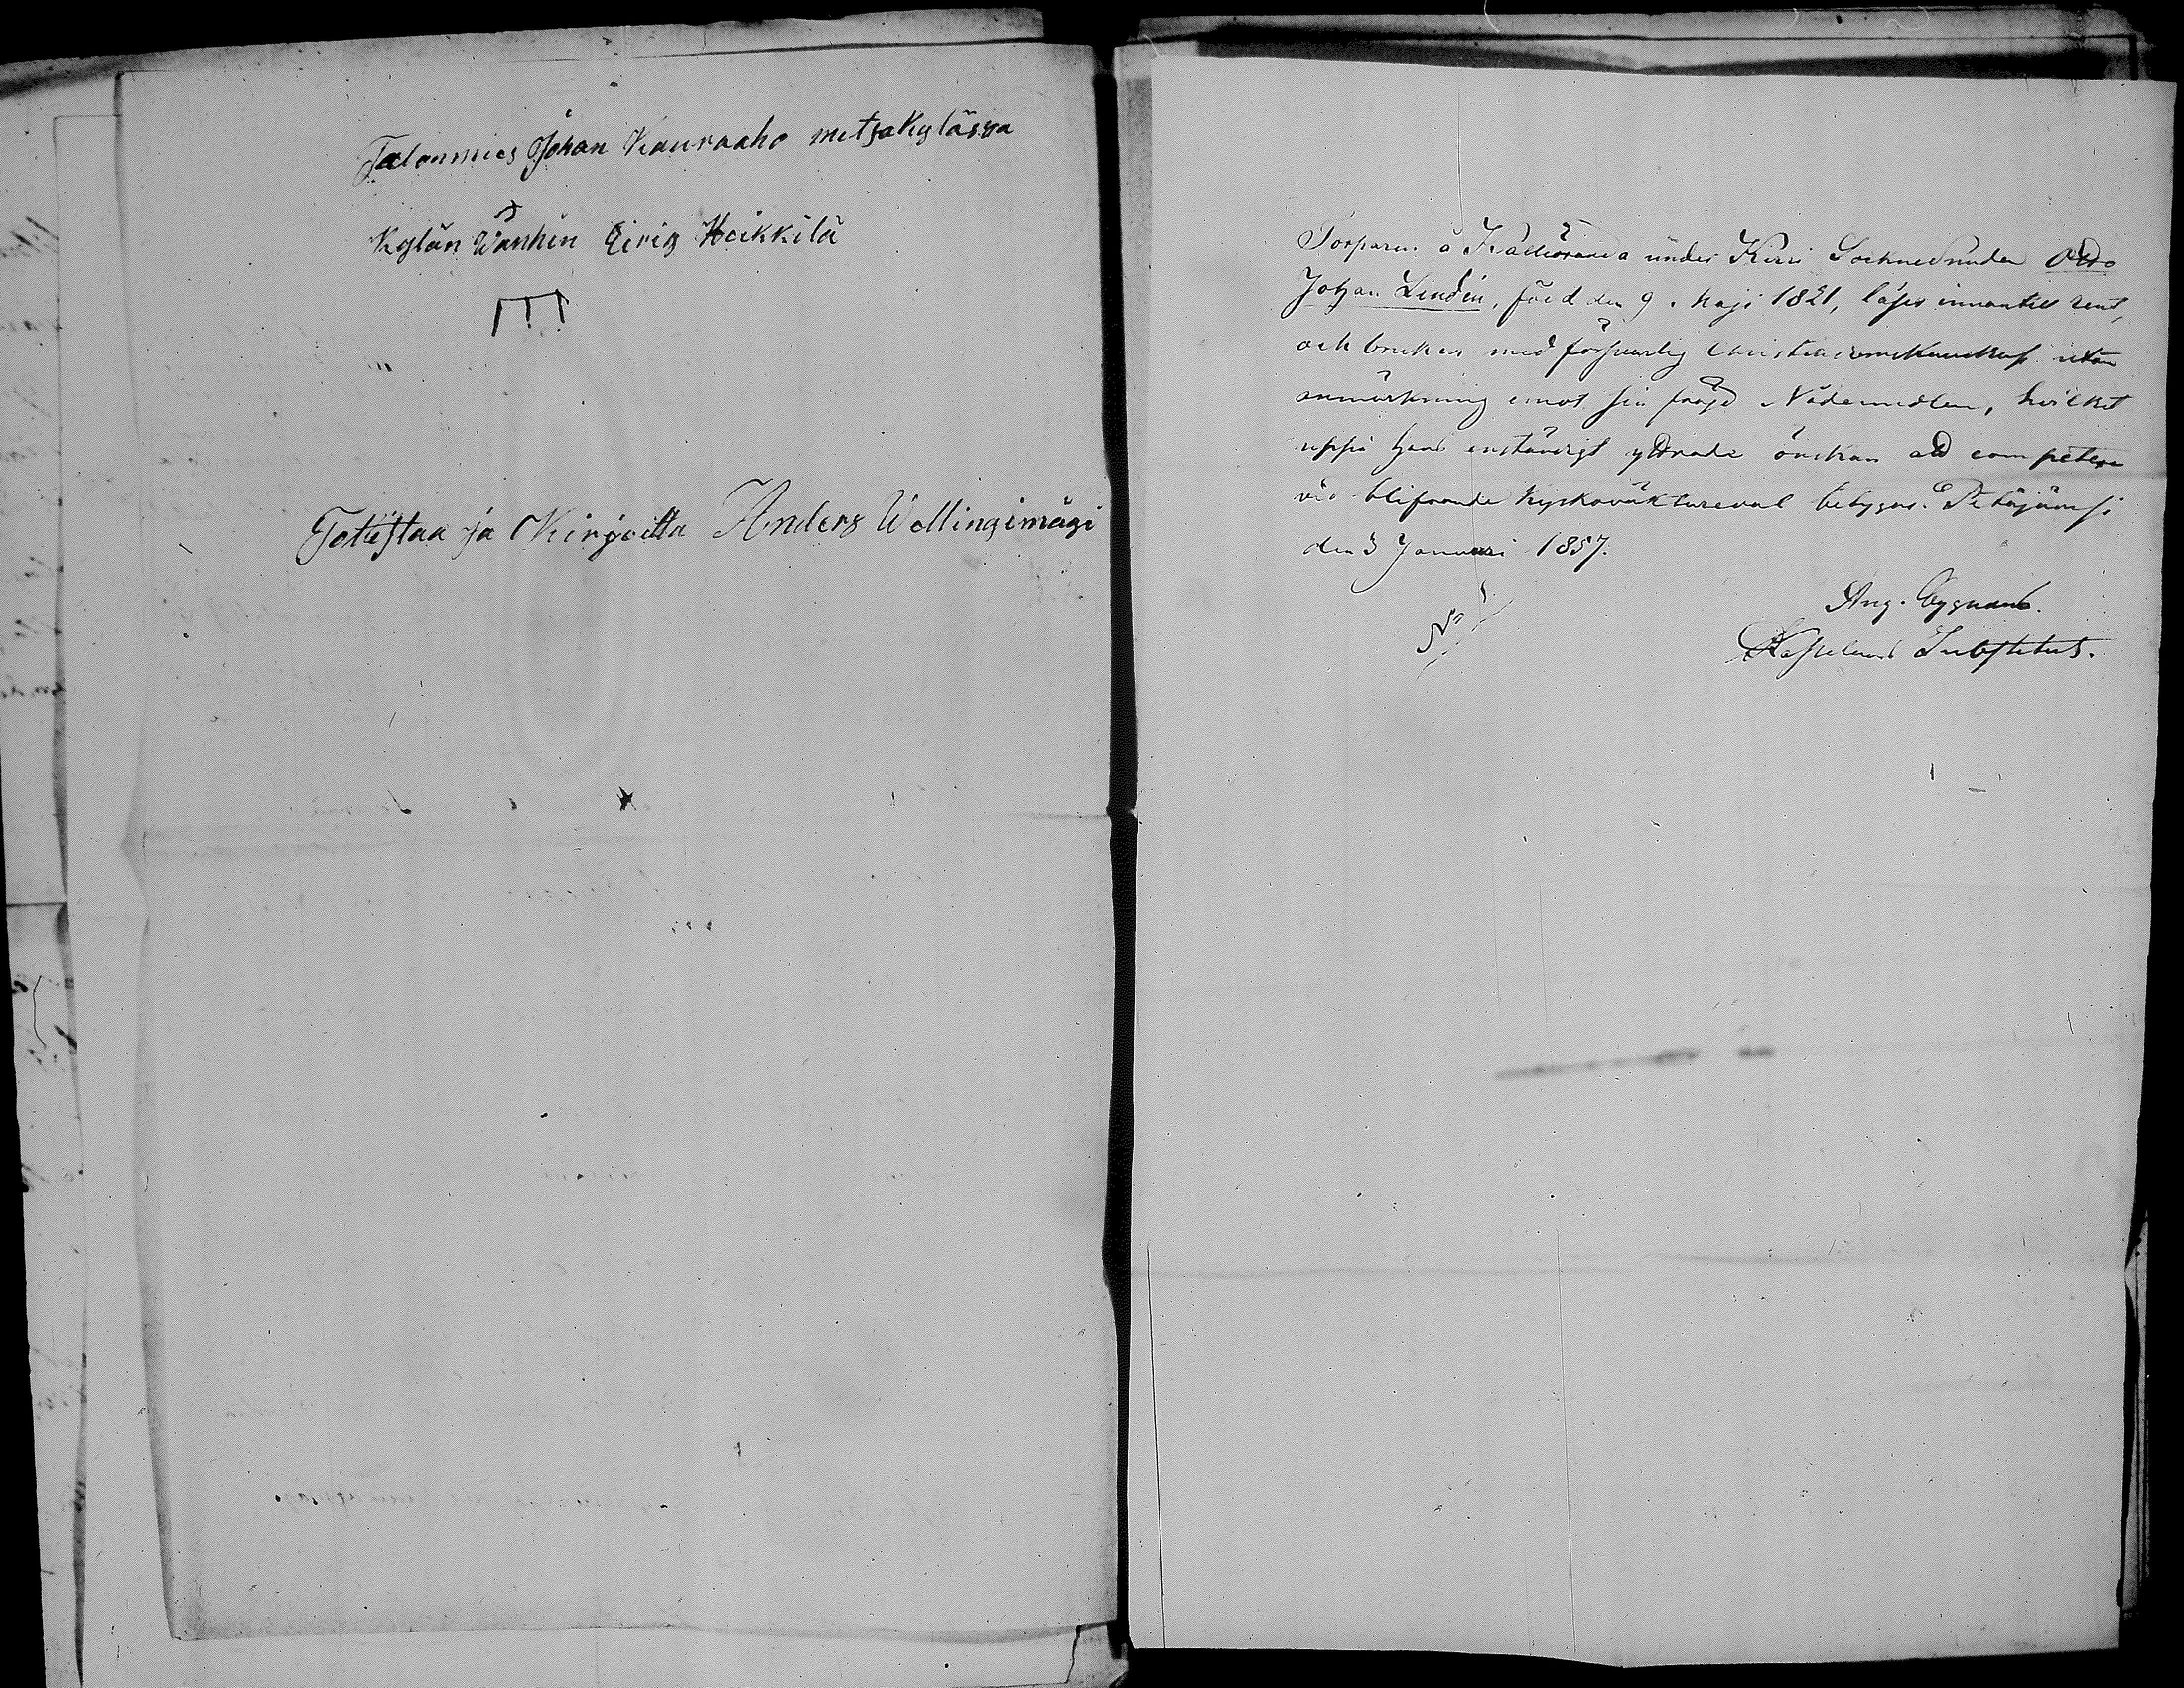 Talonmies Johan Kauraaho metsakylässa
Kylän Wanhin Eirig Heikkilä
Totistaa ja Kirjoitta Anders Wellingimägi
Torparen å under Kirri Socknerundar Otto
Johan Lindén, född den 9. Maji 1821, läser innantill rent,
och brukar med försvarlig Christendomskunskap utan
anmärkning emot sin frägd Nådemedlen, hvilket
uppå hans enständigt yttrade önskan att competera
vid blifvande kyrkovaktareval betygas. Petäjävesi
den 3 Januari 1857.
Aug. Cygnæus.
Kapellans Substitut.
N° 1